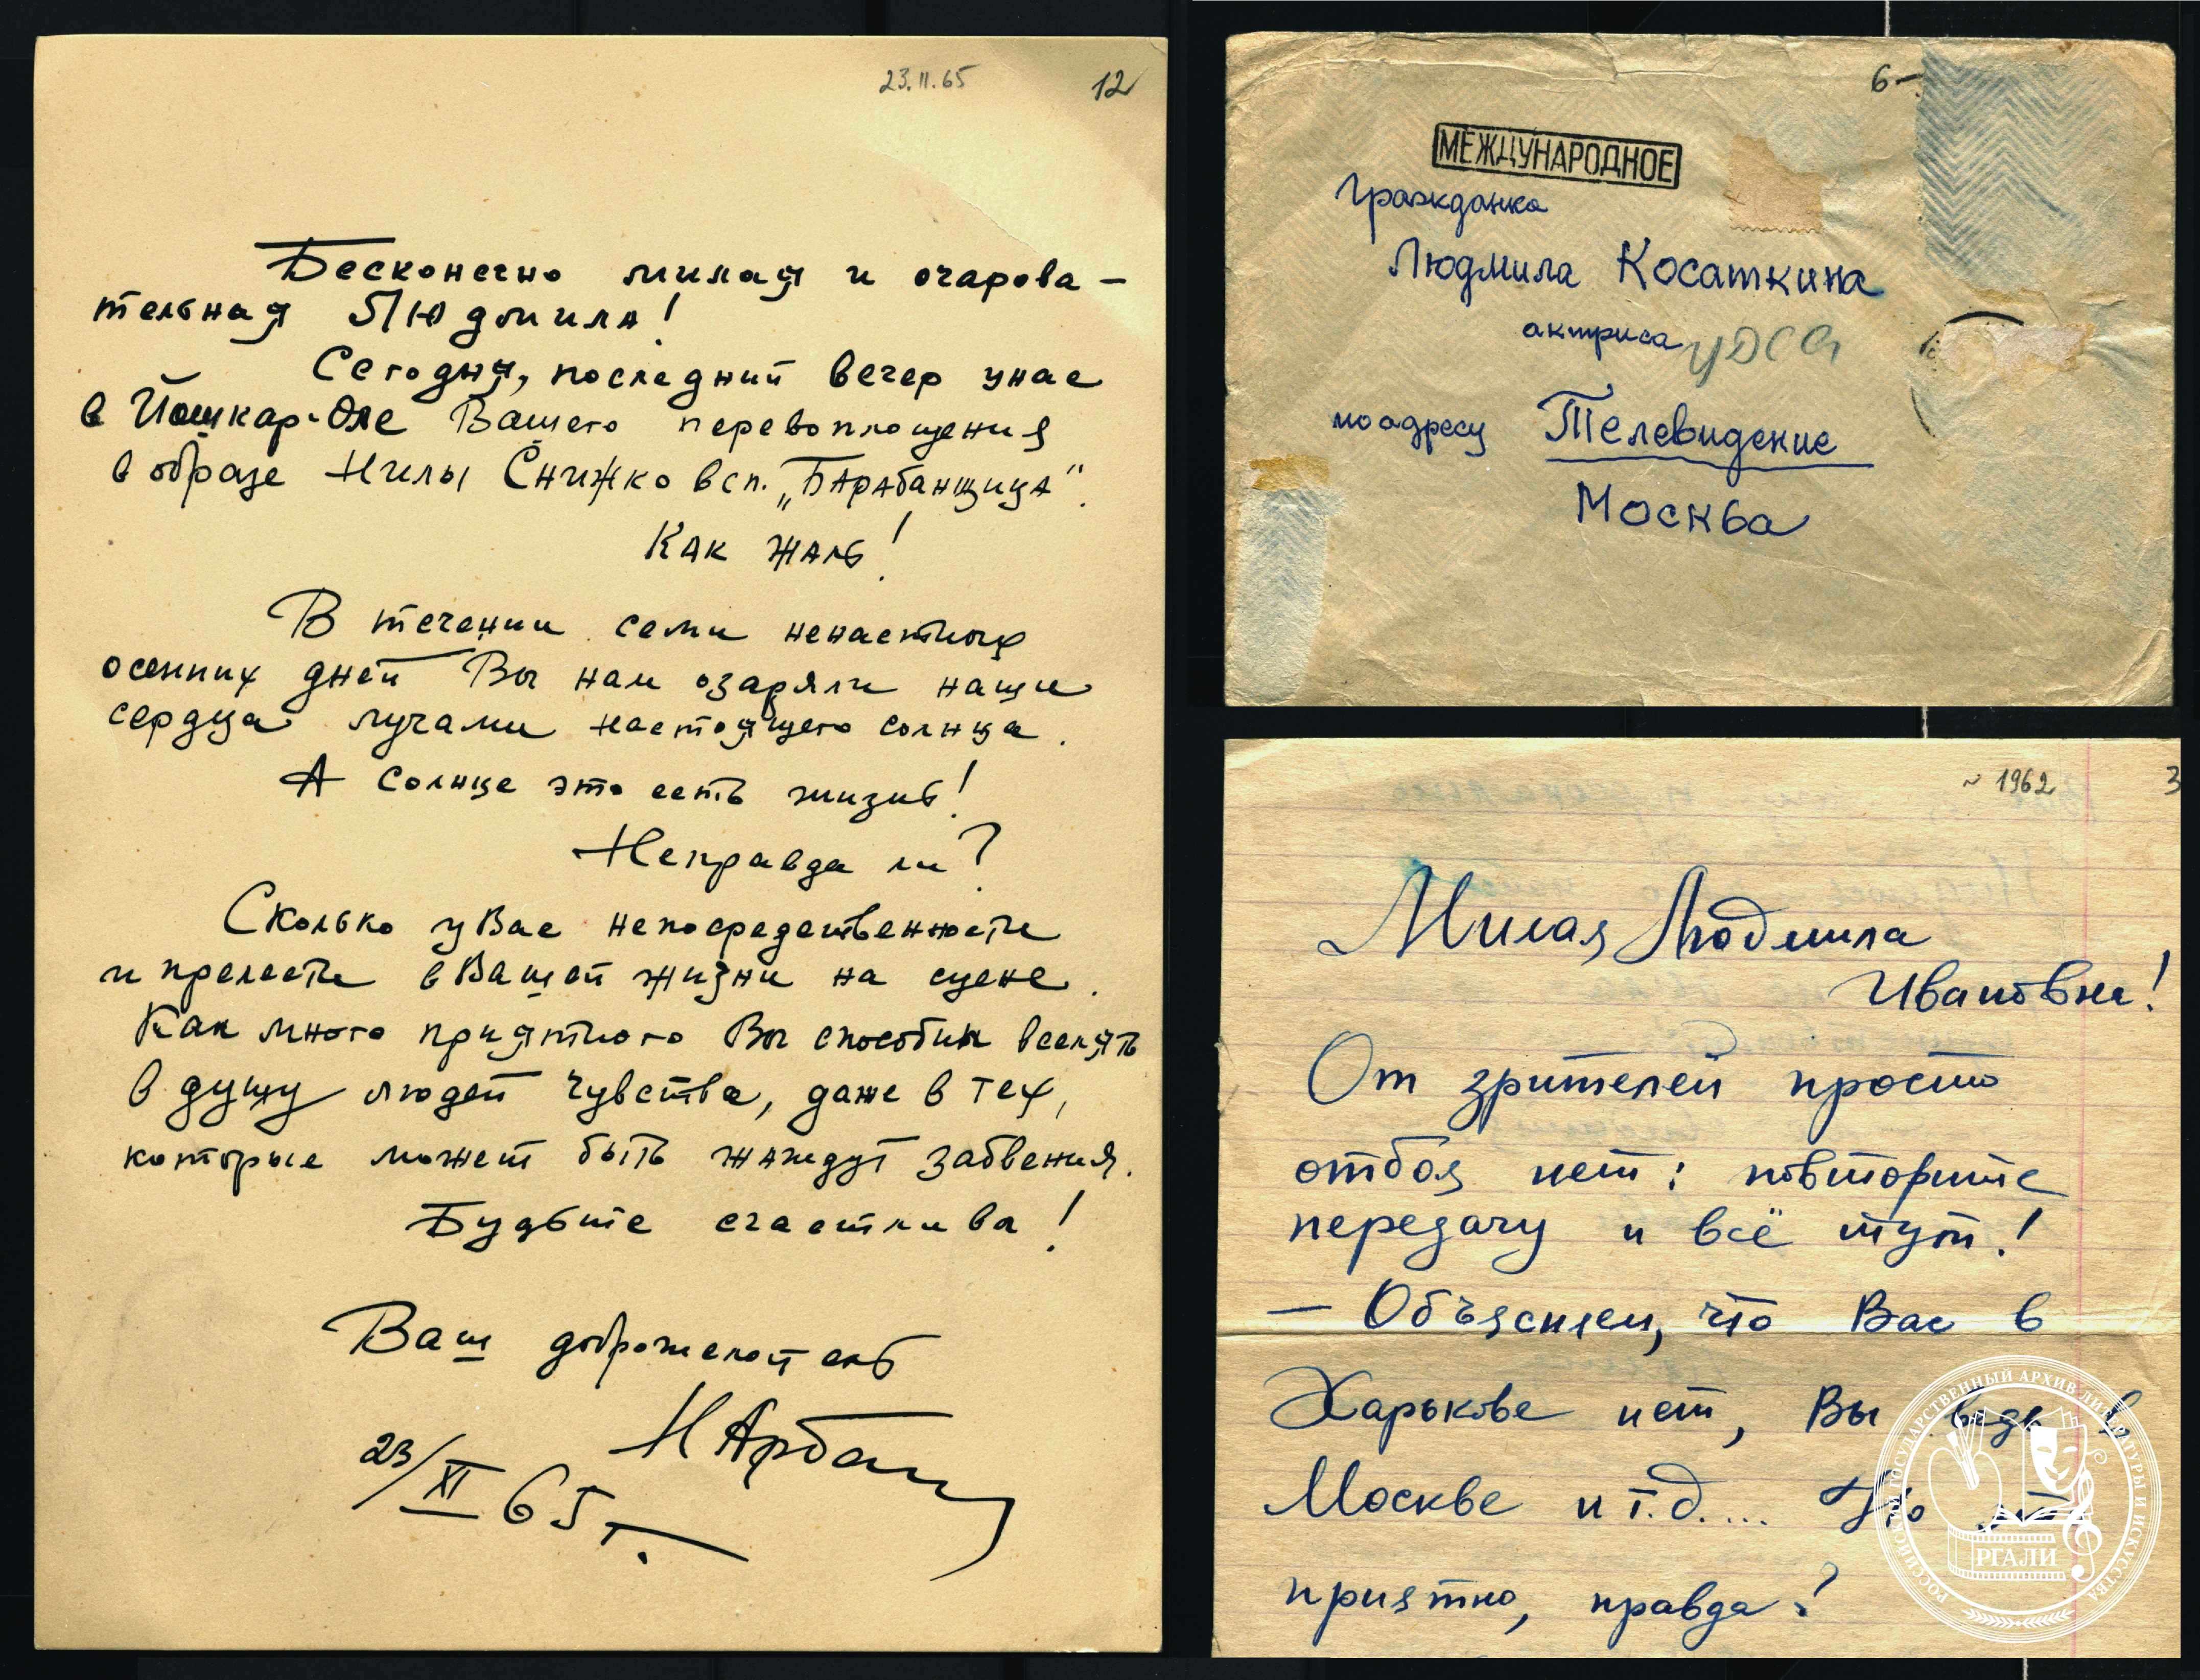 23.11.65
12
Бесконечно милая и очарова-
тельная Людмила!
Сегодня, последний вечер у нас
в Йошкар-Оле Вашего перевоплощения
в образе Нилы Снижко в сп. „Барабанщица".
Как жаль!
В течении семи ненастных
осенних дней Вы нам озаряли наши
сердца лучами настоящего солнца.
А солнце это есть жизнь!
Неправда ли?
Сколько у Вас непосредственности
и прелести в Вашей жизни на сцене.
Как много приятного Вы способны вселять
в душу людей чувства, даже в тех,
которые может быть жаждут забвения.
Будьте счастлива!
Ваш доброжелатель
23/XI 65 г.
6-
МЕЖДУНАРОДНОЕ
гражданка
Людмила Косаткина
актриса
по адресу Телевидение
Москва
~ 1962
3
Милая Людмила
Ивановна!
От зрителей просто
отбоя нет: повторите
передачу и всё тут!
— Объясняем, что Вас в
Харькове нет, Вы ведь в
Москве и т.д.... Но это
приятно, правда?
РОССИЙСКИЙ ГОСУДАРСТВЕННЫЙ АРХИВ ЛИТЕРАТУРЫ И ИСКУССТВА
РГАЛИ